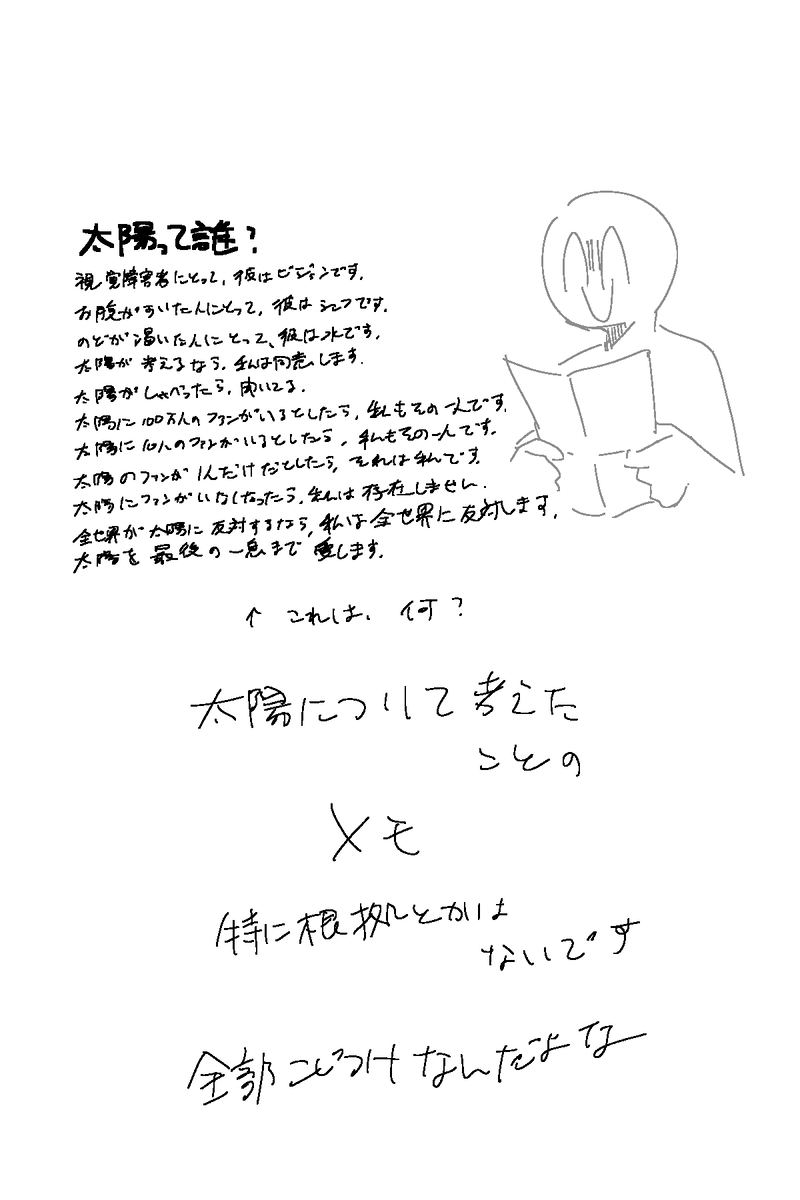 太陽って誰?
視覚障害者にとって、彼はビジョンです。
お腹がすいた人にとって、彼はシェフです。
のどが渇いた人にとって、彼は水です。
太陽が考えるなら、私は同意します。
太陽がしゃべったら、聞いてる。
太陽に100万人のファンがいるとしたら、私もその一人です。
太陽に10人のファンがいるとしたら、私もその一人です。
太陽のファンが1人だけだとしたら、それは私です。
太陽にファンがいなくなったら、私は存在しません。
全世界が太陽に反対するなら、私は全世界に反対します。
太陽を最後の一息まで愛します。
↑ これは、何?
太陽について考えた
ことの
メモ
特に根拠とかは
ないです
全部こじつけなんだよな